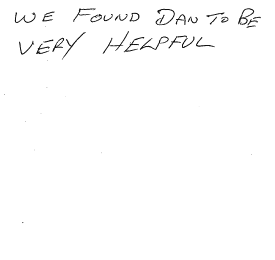 WE FOUND DAN TO BE
VERY HELPFUL